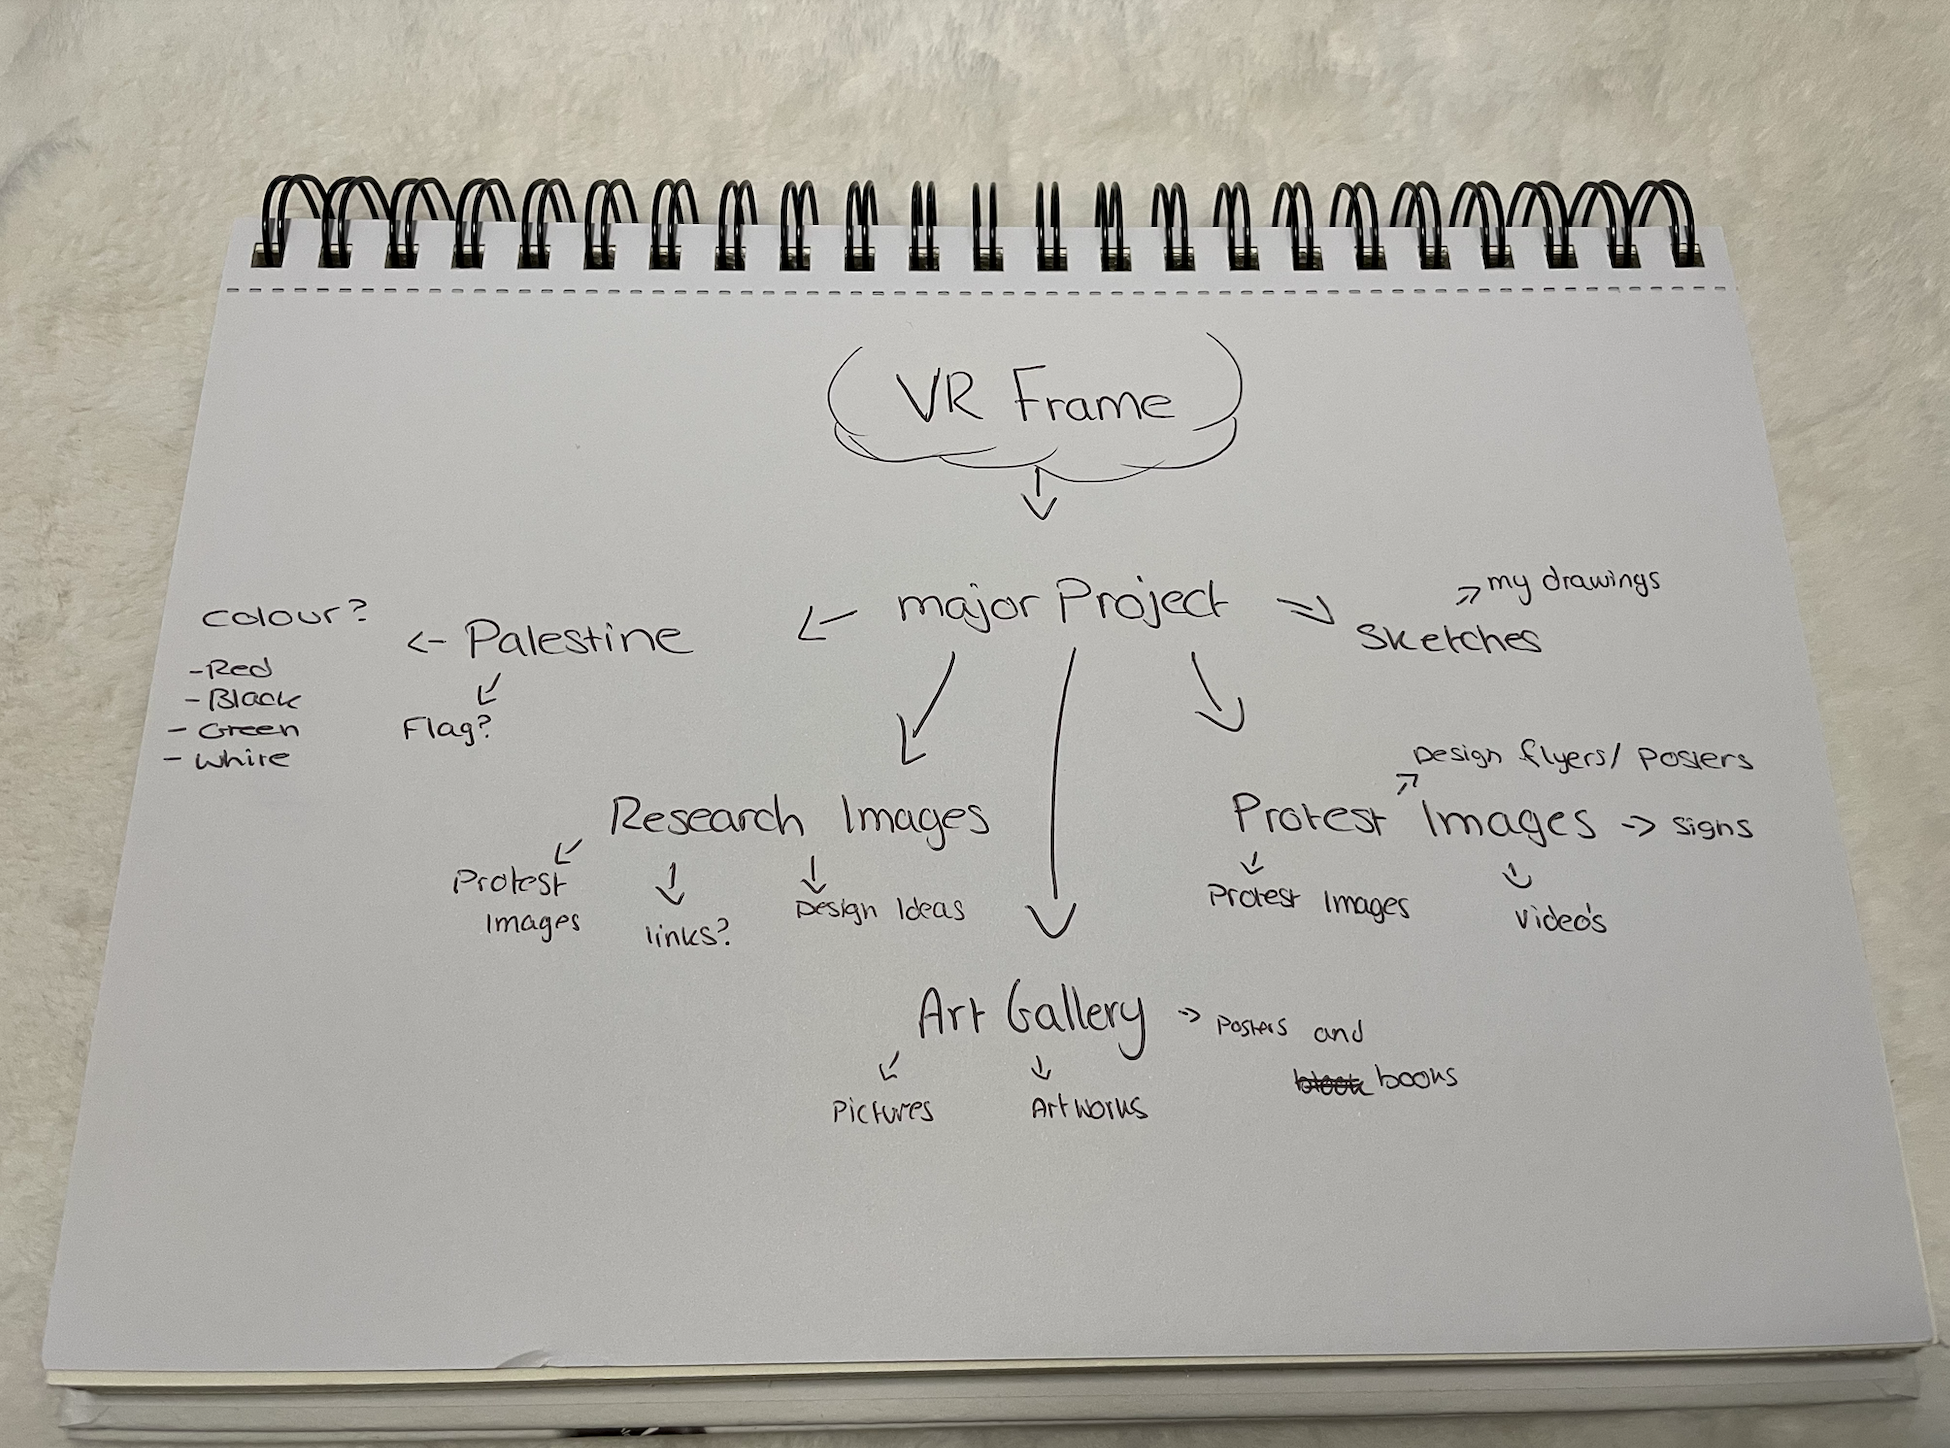 VR Frame
major Project
my drawings
Sketches
Palestine
colour?
- Red
- Black
- Green
- White
Flag?
Research Images
Protest
Images
links?
Design Ideas
Design flyers/ Posters
Protest Images -> signs
Protest Images
video's
Art Gallery -> Posters and
books
Pictures
Artworks